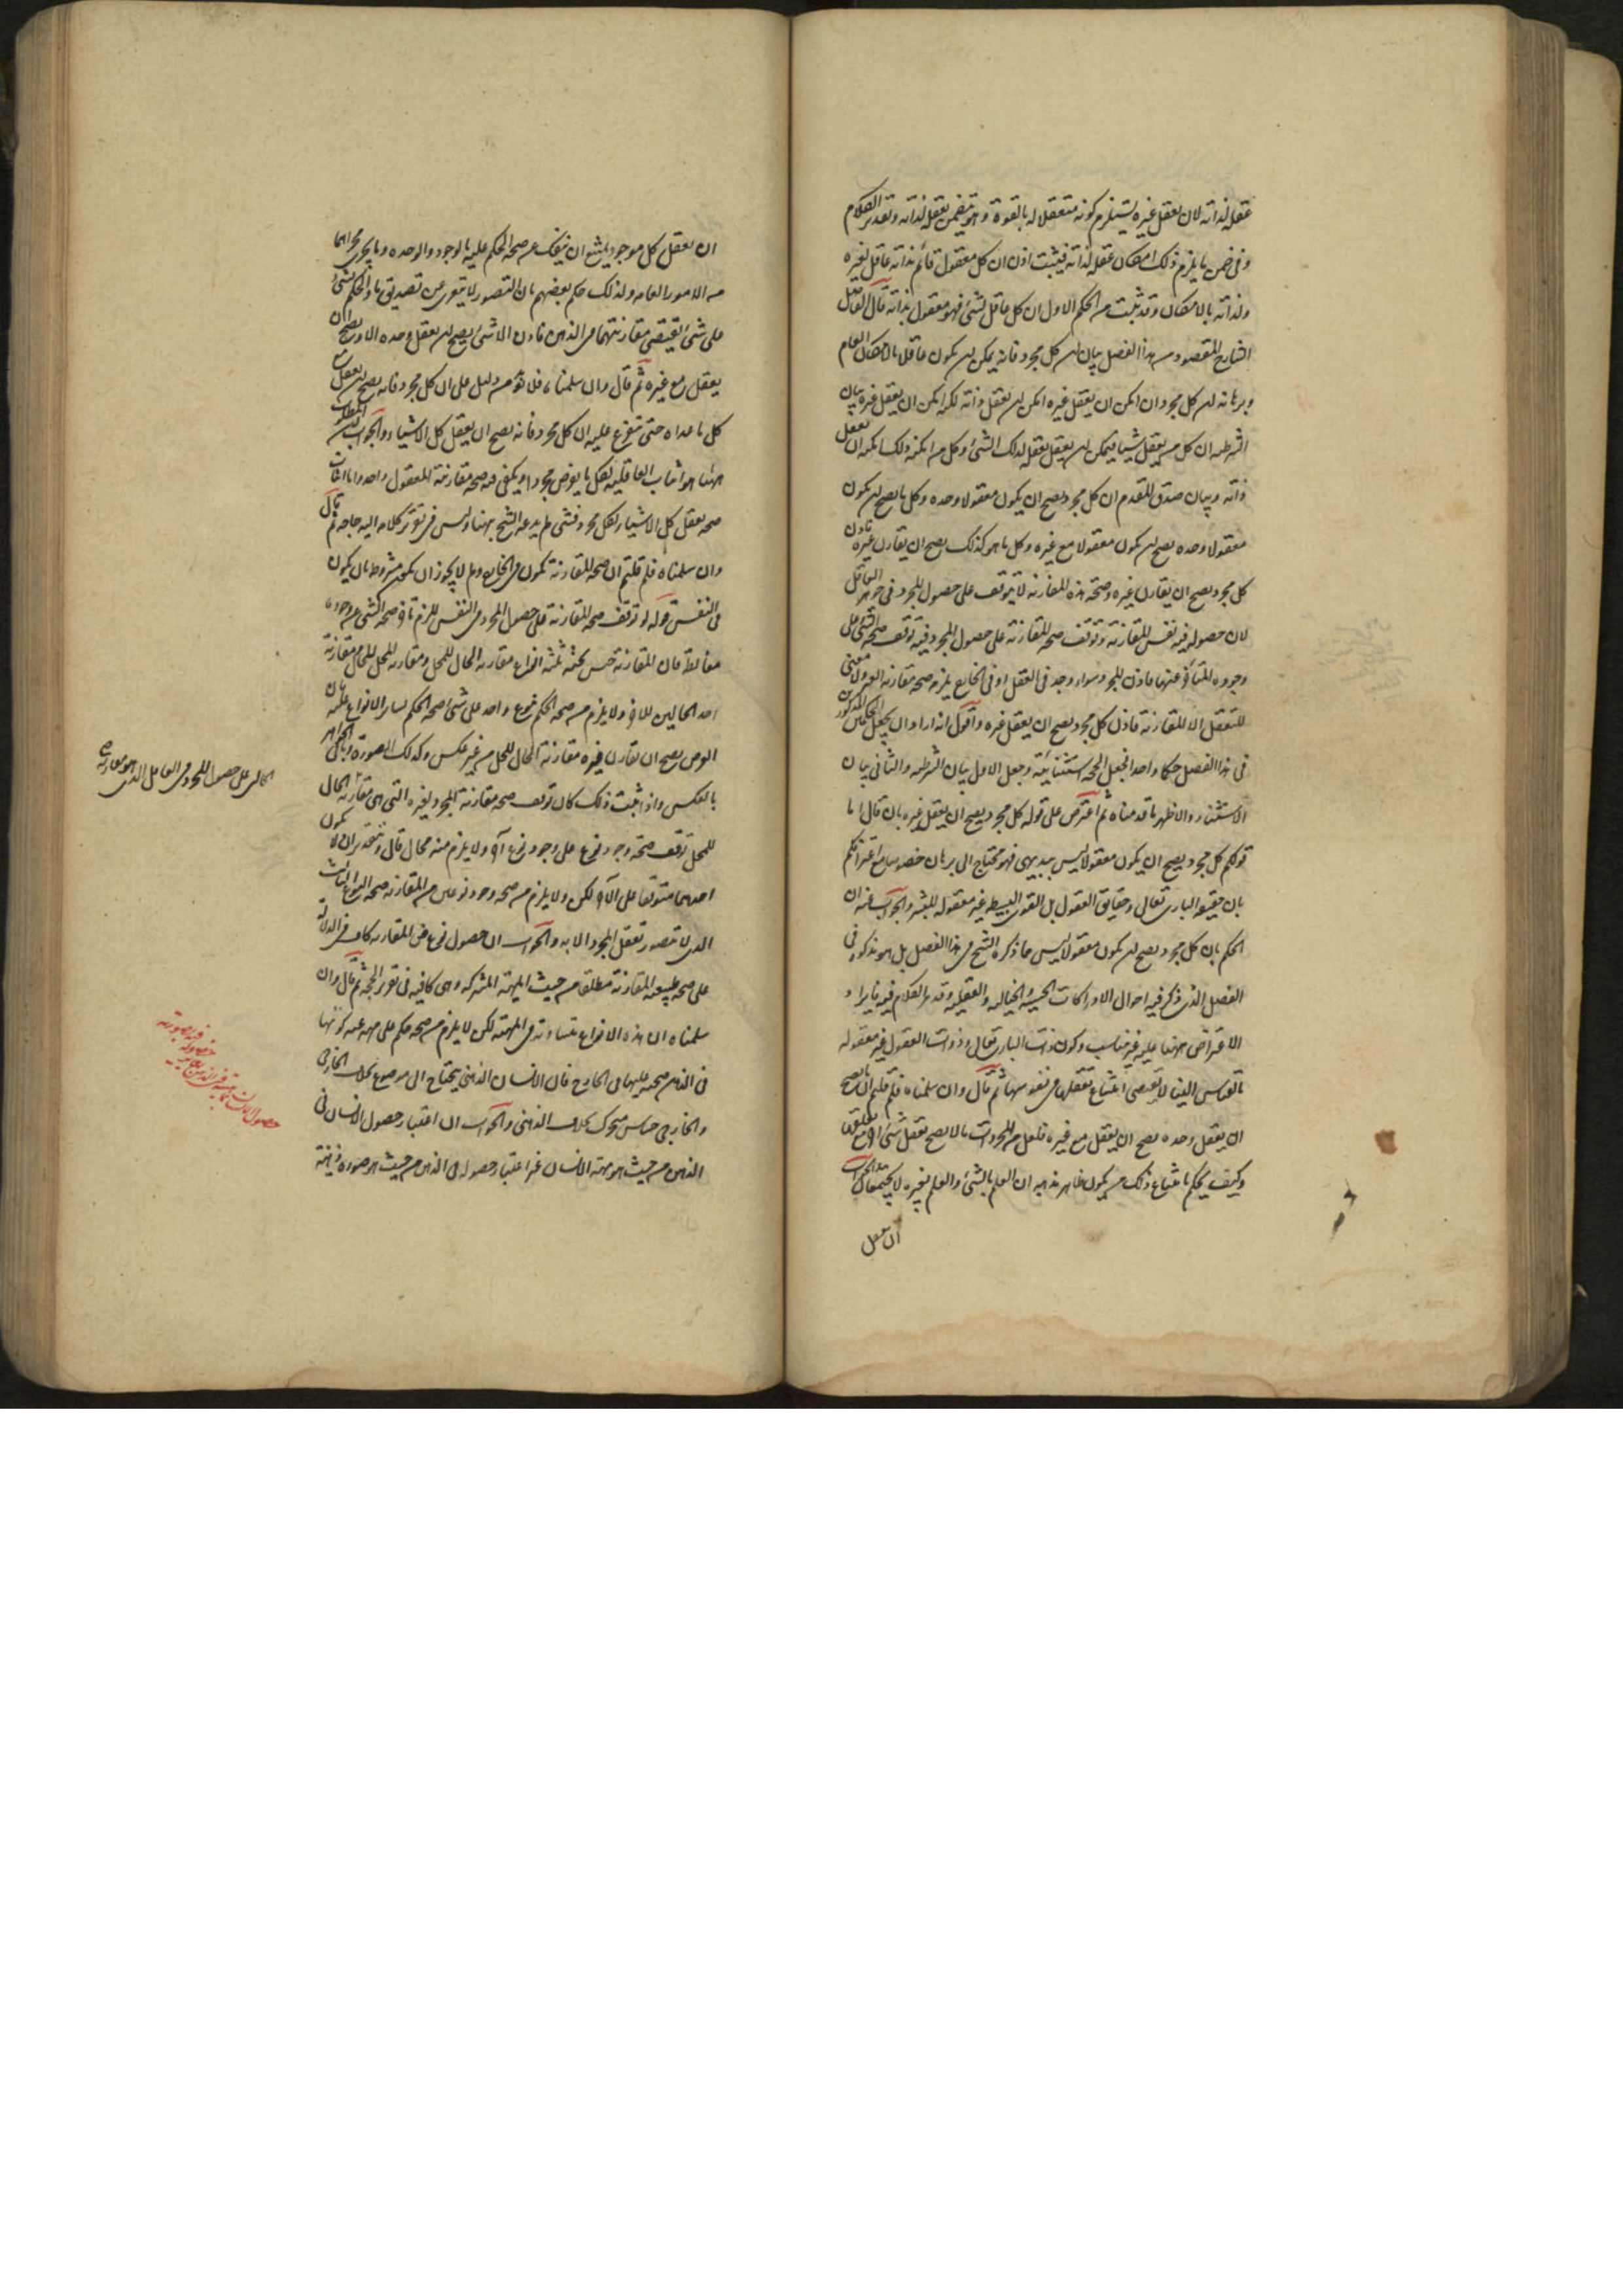 عقله لذاته لان تعقل غيره يستلزم كونه متعقلا له بالقوة وهو يتضمن تعقل لذاته وتقدير الكلام
وفى ضمن ما يلزم ذلك امكان عقله لذاته فيثبت اذن ان كل معقول قائم بذاته عاقل لغيره
ولذاته بالامكان وقد ثبت من الحكم الاول ان كل عاقل لشئ فهو معقول بذاته قال الفاضل
الشارح المقصود من هذا الفصل بيان ان كل مجرد فانه يمكن ان يكون عاقلا بالامكان العام
وبرهانه ان كل مجرد ان امكن ان يعقل غيره امكن ان يعقل ذاته لكن امكن ان يعقل غيره بيان
الشرطية ان كل من يعقل شيئا فيمكن ان يعقل تعقله لذلك الشئ وكل من امكنه ذلك امكنه ان يعقل
ذاته وبيان صدق المقدم ان كل مجرد يصح ان يكون معقولا وحده وكل ما يصح ان يكون
معقولا وحده يصح ان يكون معقولا مع غيره وكل ما هو كذلك يصح ان يقارن غيره فاذن
كل مجرد يصح ان يقارن غيره وصحة هذه المقارنة لا يتوقف على حصول المجرد فى جوهر العاقل
لان حصوله فيه نفس المقارنة وتوقف صحة المقارنة على حصول المجرد فيه توقف صحة الشئ على
وجوده المتأخر عنها فاذن المجرد سواء وجد فى العقل او فى الخارج يلزمه صحة مقارنة الغير ولا معنى
للتعقل الا المقارنة فاذن كل مجرد يصح ان يعقل غيره واقول انه اراد ان يجعل الحكمين المذكورين
فى هذا الفصل حكما واحدا فجعل الحجة استثنائية وجعل الاول بيان الشرطية والثانى بيان
الاستثناء والاظهر ما قدمناه ثم اعترض على قوله كل مجرد يصح ان يعقل غيره بان قال اما
قولكم كل مجرد يصح ان يكون معقولا ليس ببديهى فهو محتاج الى برهان خصوصا مع اعترافكم
بان حقيقة البارى تعالى وحقايق العقول بل القوى البسيطة غير معقولة للبشر والجواب عنه ان
الحكم بان كل مجرد يصح ان يكون معقولا ليس مما ذكره الشيخ فى هذا الفصل بل هو مذكور فى
الفصل الذى ذكر فيه احوال الادراكات الحسية والخيالية والعقلية وقد مر الكلام فيه فايراد
الاعتراض ههنا عليه غير مناسب وكون ذات البارى تعالى وذوات العقول غير معقوله
بالقياس الينا لا يقتضى امتناع تعقلها فى نفوسها ثم قال وان سلمناه فلم قلتم ان ما يصح
ان يعقل وحده يصح ان يعقل مع غيره فلعل من المجردات ما لا يصح تعقل شئ آخر مع تعقله
وكيف يحكم بامتناع ذلك من يكون ظاهر مذهبه ان العلم بالشئ والعلم بغيره لا يجتمعان والجواب
ان تعقل
ان تعقل كل موجود يمتنع ان ينفك عن صحة الحكم عليه بالوجود والوحدة وما يجرى مجراهما
من الامور العامة ولذلك حكم بعضهم بان التصور لا يتعرى عن تصديق ما والحكم بشئ
على شئ يقتضى مقارنتهما فى الذهن فاذن الا شئ يصح ان يعقل وحده الا ويصح ان
يعقل مع غيره ثم قال وان سلمناه فلا نوع من دليل على ان كل مجرد فانه يصح ان يعقل مع
كل ما عداه حتى يتفرع عليه ان كل مجرد فانه يصح ان يعقل كل الاشياء والجواب ان المطلوب
ههنا هو اثبات العاقلية لكل ما يفرض مجردا ويكفى فيه صحة مقارنته لمعقول واحد واما اثبات
صحة تعقل كل الاشياء لكل مجرد فشئ لم يدعه الشيخ ههنا وليس فى تقرير كلامه اليه حاجة ثم قال
وان سلمناه فلم قلتم ان صحة المقارنة تكون فى الخارج ولم لا يجوز ان تكون مشروطة بان يكون
فى النفس قوله لو توقف صحة المقارنة على حصول المجرد فى النفس للزم تأخر صحة الشئ عن وجوده
مغالطة فان المقارنة جنس تحته ثلثة انواع مقارنة الحال للمحل ومقارنة المحل للحال ومقارنة
احد الحالين للاخر ولا يلزم من صحة الحكم بنوع واحد على شئ صحة الحكم بسائر الانواع عليه فان
العرض يصح ان يقارن غيره مقارنة الحال للمحل من غير عكس وكذلك الصورة وباقى الجواهر
بالعكس واذا ثبت ذلك كان توقف صحة مقارنة المجرد لغيره التى هى مقارنة الحال
للمحل توقف صحة وجود نوع على وجود نوع آخر ولا يلزم منه محال قال وبتقدير ان لا يكون
احدهما متوقفا على الآخر لكن ولا يلزم من صحة وجود نوعين من المقارنة صحة النوع الثالث
الذى لا تتصور تعقل المجرد الا به والجواب ان حصول نوع من المقارنة كاف فى الدلالة
على صحة طبيعة المقارنة مطلقا من حيث المهية المشتركة وهى كافية فى تقرير الحجة ثم قال وان
سلمناه ان هذه الانواع متساوية فى المهية لكن لا يلزم من صحة حكم على مهية عند كونها
فى الذهن صحته عليها فى الخارج فان الانسان الذهنى يحتاج الى موضوع بخلاف الخارجى
والخارجى حساس متحرك بخلاف الذهنى والجواب ان اعتبار حصول الانسان فى
الذهن من حيث هو مهية الانسان غير اعتبار حصوله فى الذهن من حيث هو صورة ذهنية
على حصول المجرد فى العاقل الذى هو مقارنة